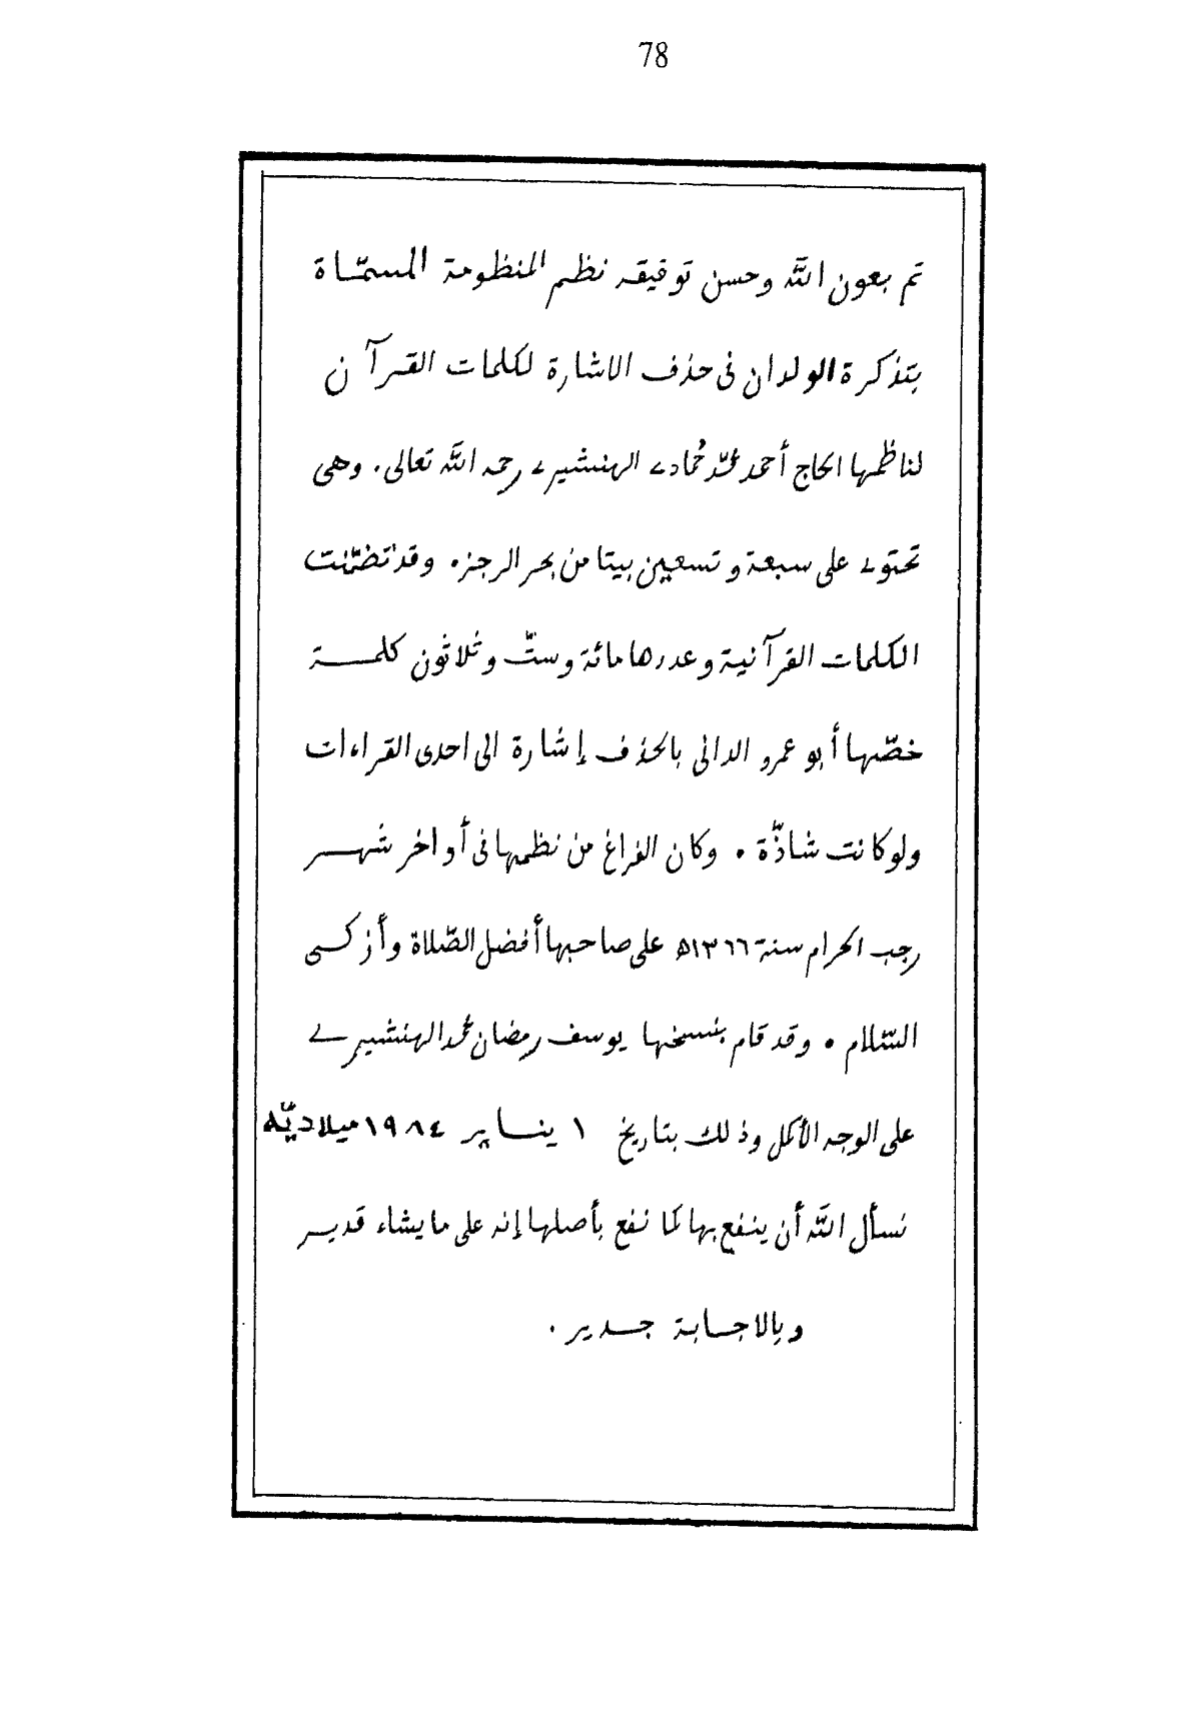 78
تم بعون الله وحسن توفيقه نظم المنظومة المسمّاة
بتذكرة الولدان فى حذف الاشارة لكلمات القرآن
لناظمها الحاج أحمد محمّد حُمادى الهنشيرى رحمه الله تعالى. وهى
تحتوى على سبعة وتسعين بيتا من بحر الرجز. وقد تضمّنت
الكلمات القرآنية وعددها مائة وستّ وثلاثون كلمة
خصّها أبو عمرو الدانى بالحذف إشارة الى احدى القراءات
ولو كانت شاذّة . وكان الفراغ من نظمها فى أواخر شهر
رجب الحرام سنة ١٣٦٦ه على صاحبها أفضل الصّلاة وأزكى
السّلام . وقد قام بنسخها يوسف رمضان محمد الهنشيرى
على الوجه الأكمل وذلك بتاريخ ١ يناير ١٩٨٤ ميلاديّه
نسأل الله أن ينفع بها كما نفع بأصلها إنه على ما يشاء قدير
وبالاجابة جدير .